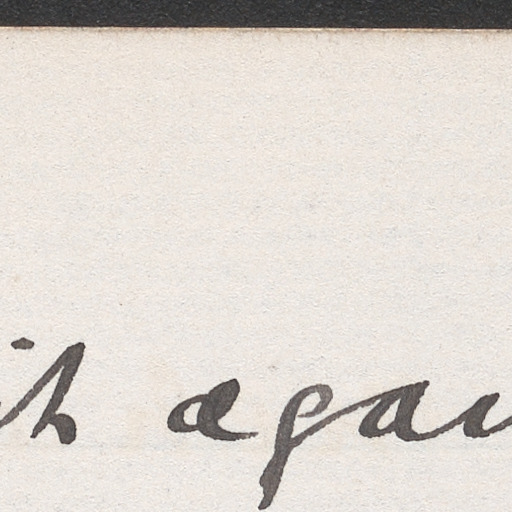 it agai